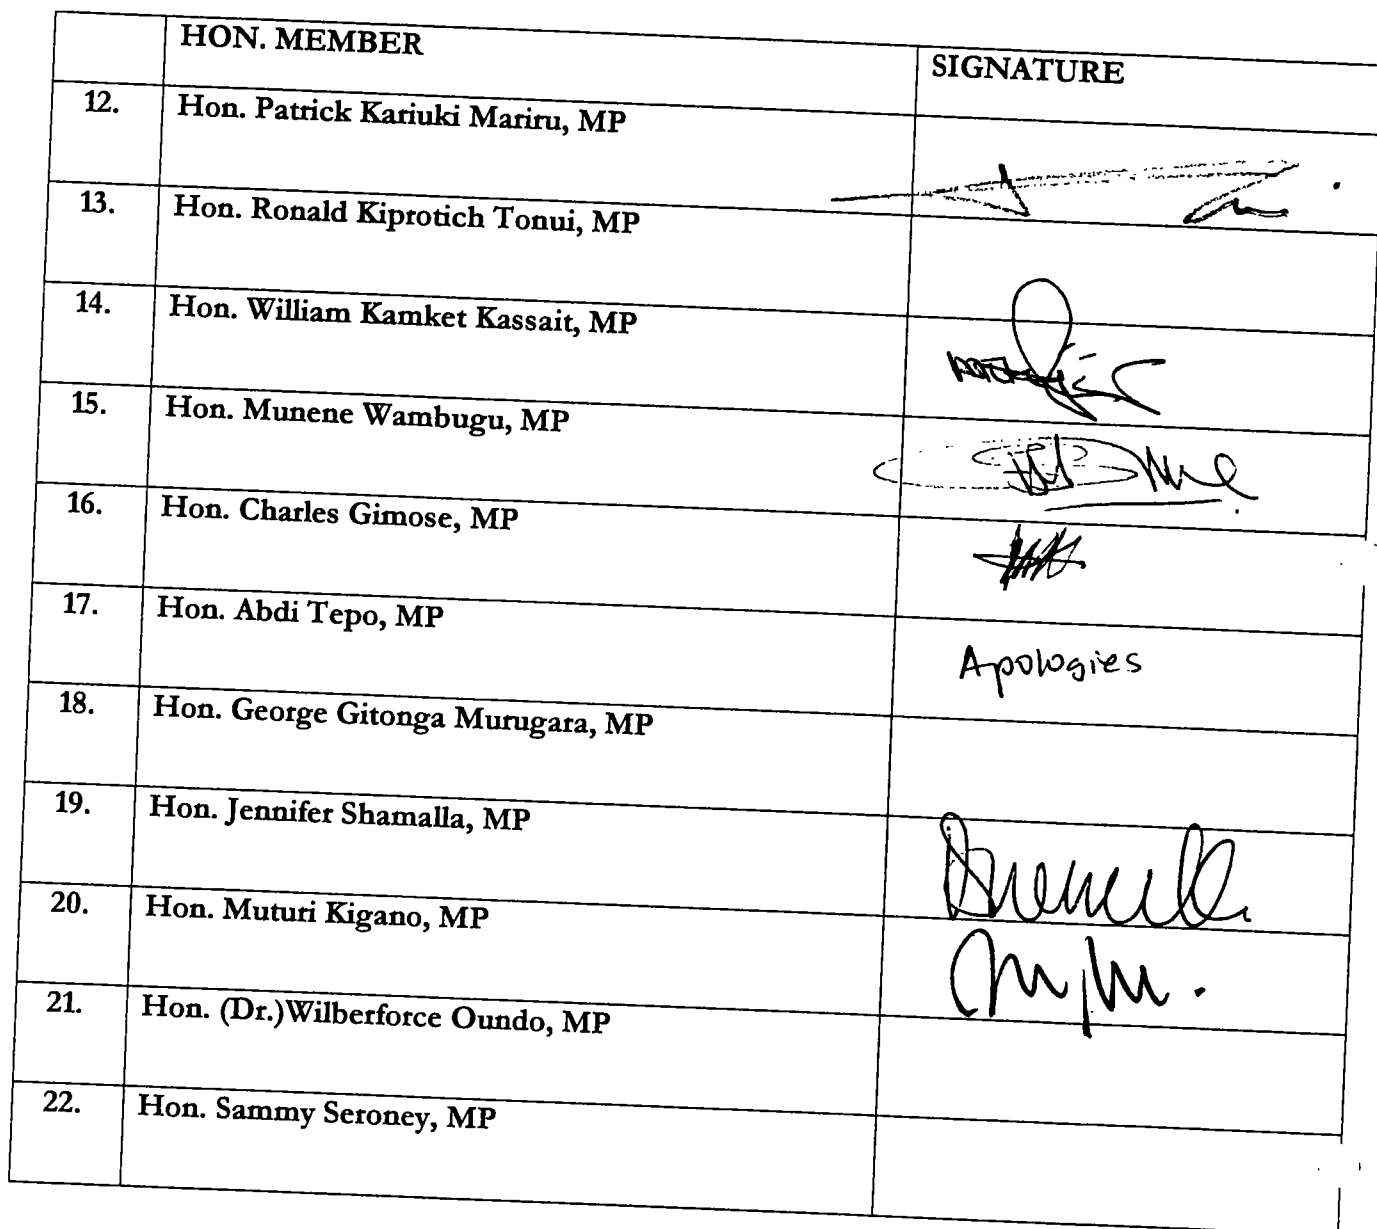 HON. MEMBER SIGNATURE
12. Hon. Patrick Kariuki Mariru, MP
13. Hon. Ronald Kiprotich Tonui, MP
14. Hon. William Kamket Kassait, MP
15. Hon. Munene Wambugu, MP
16. Hon. Charles Gimose, MP
17. Hon. Abdi Tepo, MP Apologies
18. Hon. George Gitonga Murugara, MP
19. Hon. Jennifer Shamalla, MP
20. Hon. Muturi Kigano, MP
21. Hon. (Dr.)Wilberforce Oundo, MP
22. Hon. Sammy Seroney, MP